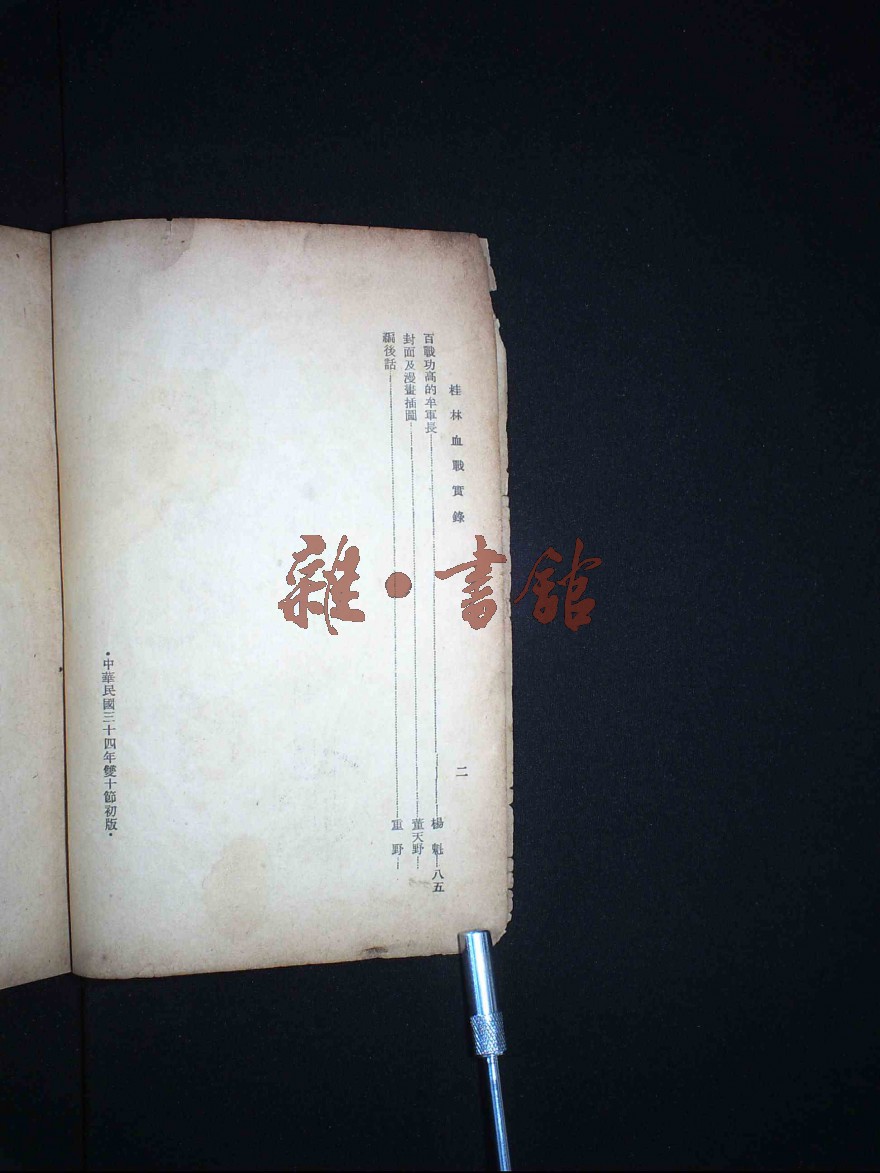 桂林血戰實錄 二
百戰功高的牟軍長 楊魁 八五
封面及漫畫插圖 董天野
編後話 重野
•中華民國三十四年雙十節初版•
雜•書館